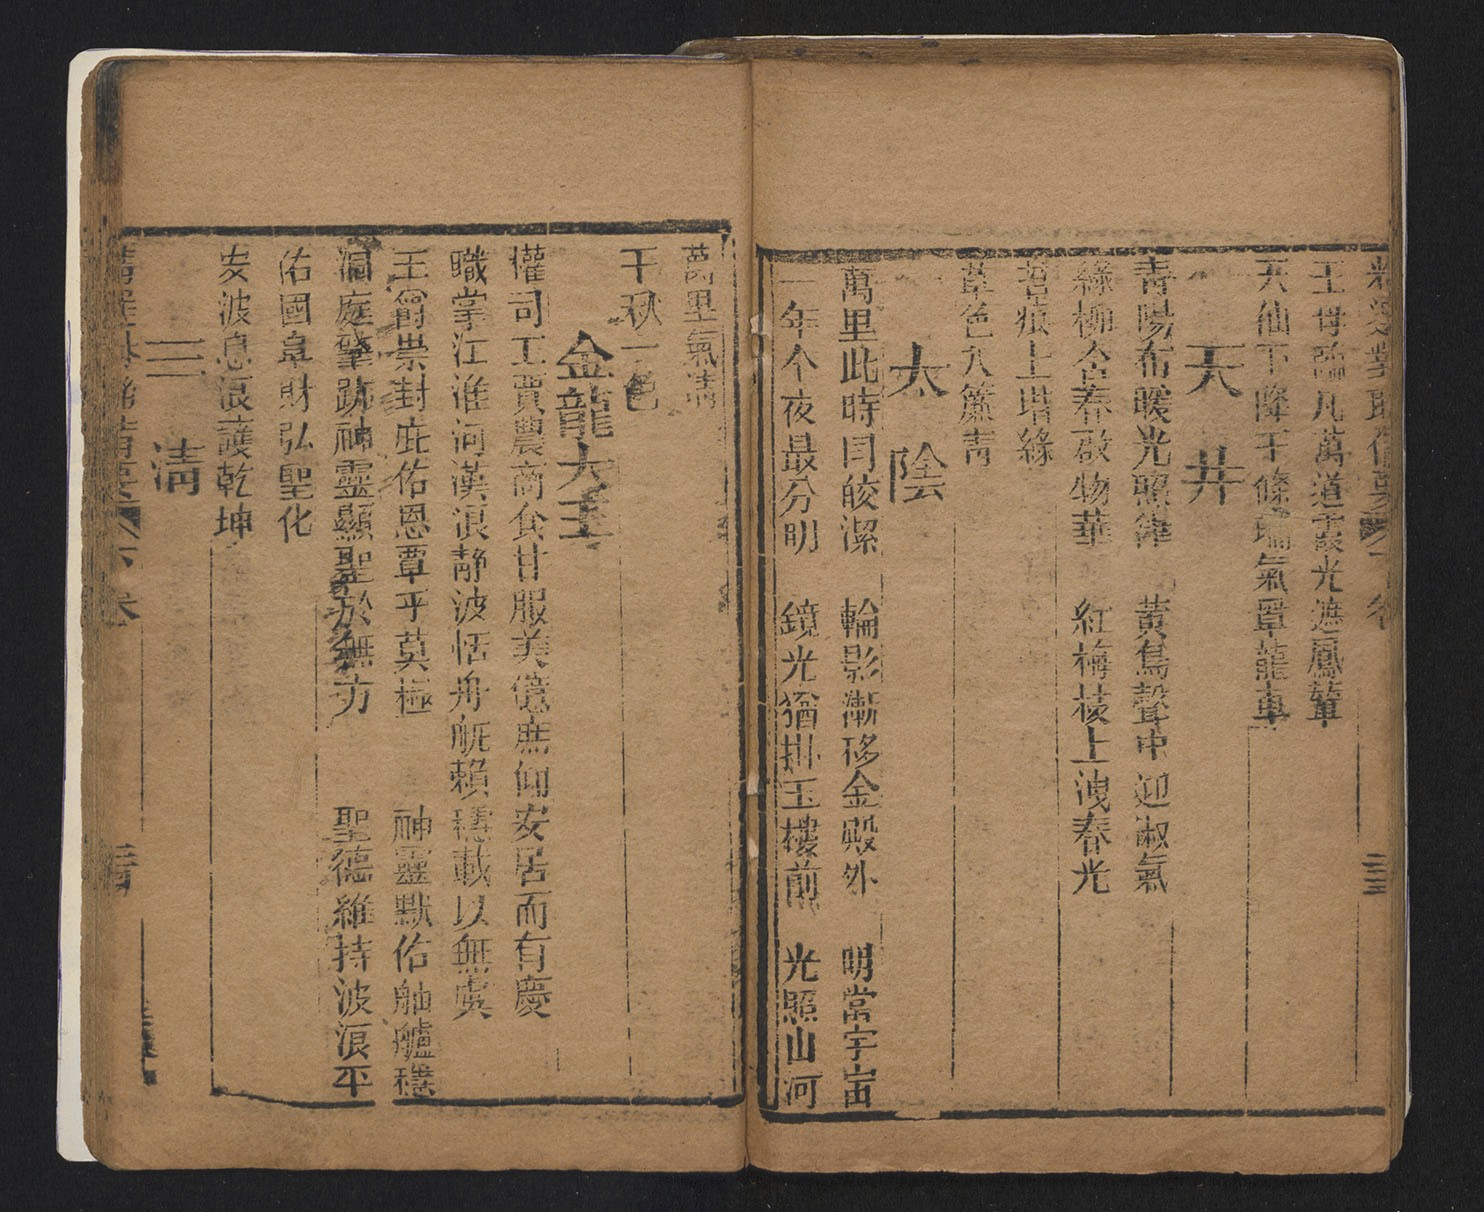 王母臨凡萬道霞光遮鳳輦
天仙下降千條瑞氣罩龍車
天井
青陽布暖光照律 黃鳥聲中迎淑氣
綠柳含春啟物華 紅梅枝上洩春光
苔痕上堦綠
草色入簾青
太陰
萬里此時同皎潔 輪影漸移金殿外 明當宇宙
一年今夜最分明 鏡光猶掛玉樓前 光照山河
萬里氣清
千秋一色
金龍大王
權司工賈農商食甘服美億庶仰安居而有慶
職掌江淮河漢浪静波恬舟航賴穩載以無虞
王爵崇封庇佑恩覃乎莫極 神靈默佑舳艫穩
洞庭肇跡神靈顯聖於無方 聖德維持波浪平
佑國阜財弘聖化
安波息浪護乾坤
三清
下卷